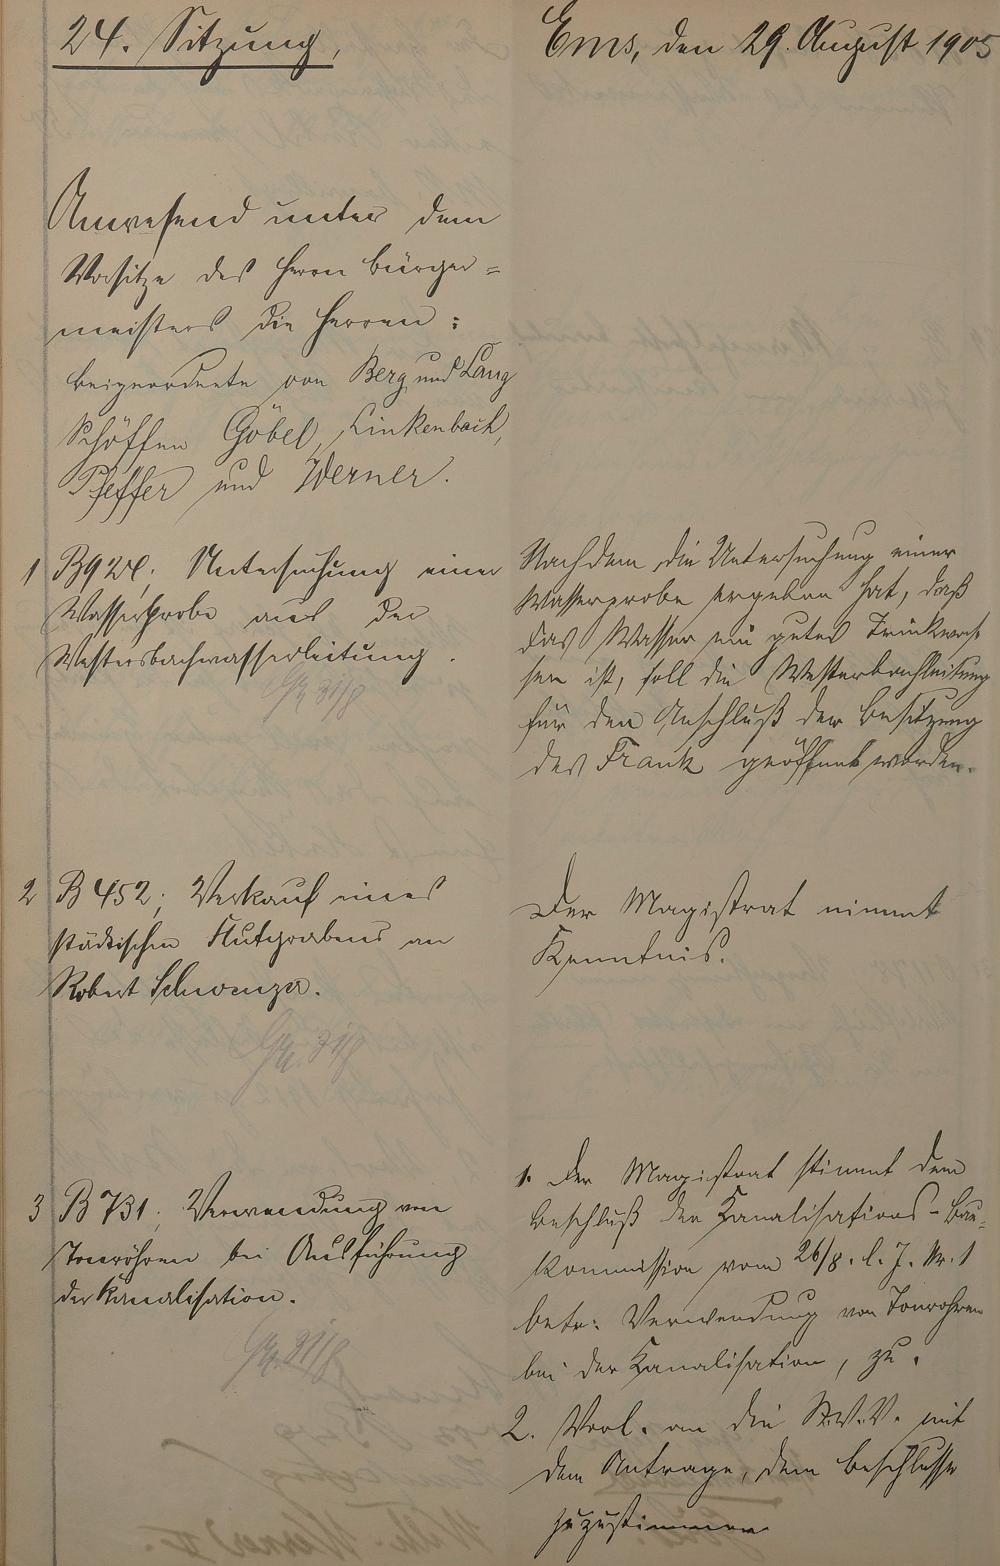 24. Sitzung,
Ems, den 29. August 1905
Anwesend unter dem
Vorsitze des Herrn Bürger=
meisters die Herren:
Beigeordnete von Berg und Lang
Schöffen Göbel, Linkenbach,
Pfeffer und Werner.
1 B 924. Untersuchung einer
Wasserprobe aus der
Westersbachwasserleitung.
31/8
Nachdem die Untersuchung einer
Wasserprobe ergeben hat, daß
das Wasser ein gutes Trinkwas-
ser ist, soll die Westerbachleitung
für den Anschluß der Besitzung
des Frank geöffnet werden.
2 B 452, Verkauf eines
städtischen Flutgrabens an
Robert Schwenzer.
31/8
Der Magistrat nimmt
Kenntnis.
3 B 731, Verwendung von
Tonröhren bei Ausführung
der Kanalisation.
31/8
1. Der Magistrat stimmt dem
Beschluß der Kanalisations-Bau-
kommission vom 26/8. l. J. Nr. 1
betr: Verwendung von Tonrohren
bei der Kanalisation, zu.
2. Vorl. an die St.V.V. mit
dem Antrage, dem Beschlusse
zuzustimmen